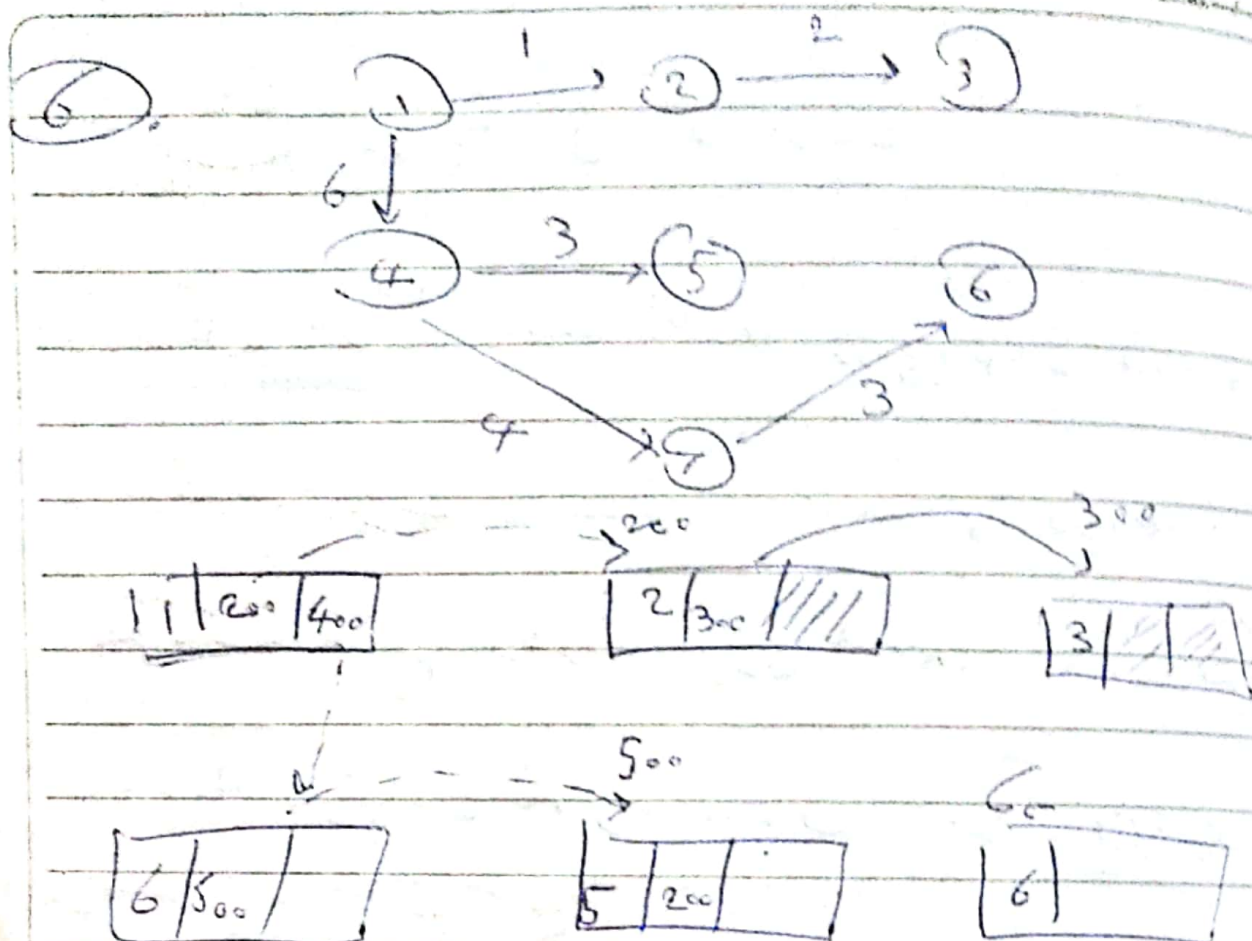 6.
1 1 2 2 3
6
4 3 5 6
4 3
200 300
1 200 400 2 300 3
500
6 500 5 200 6